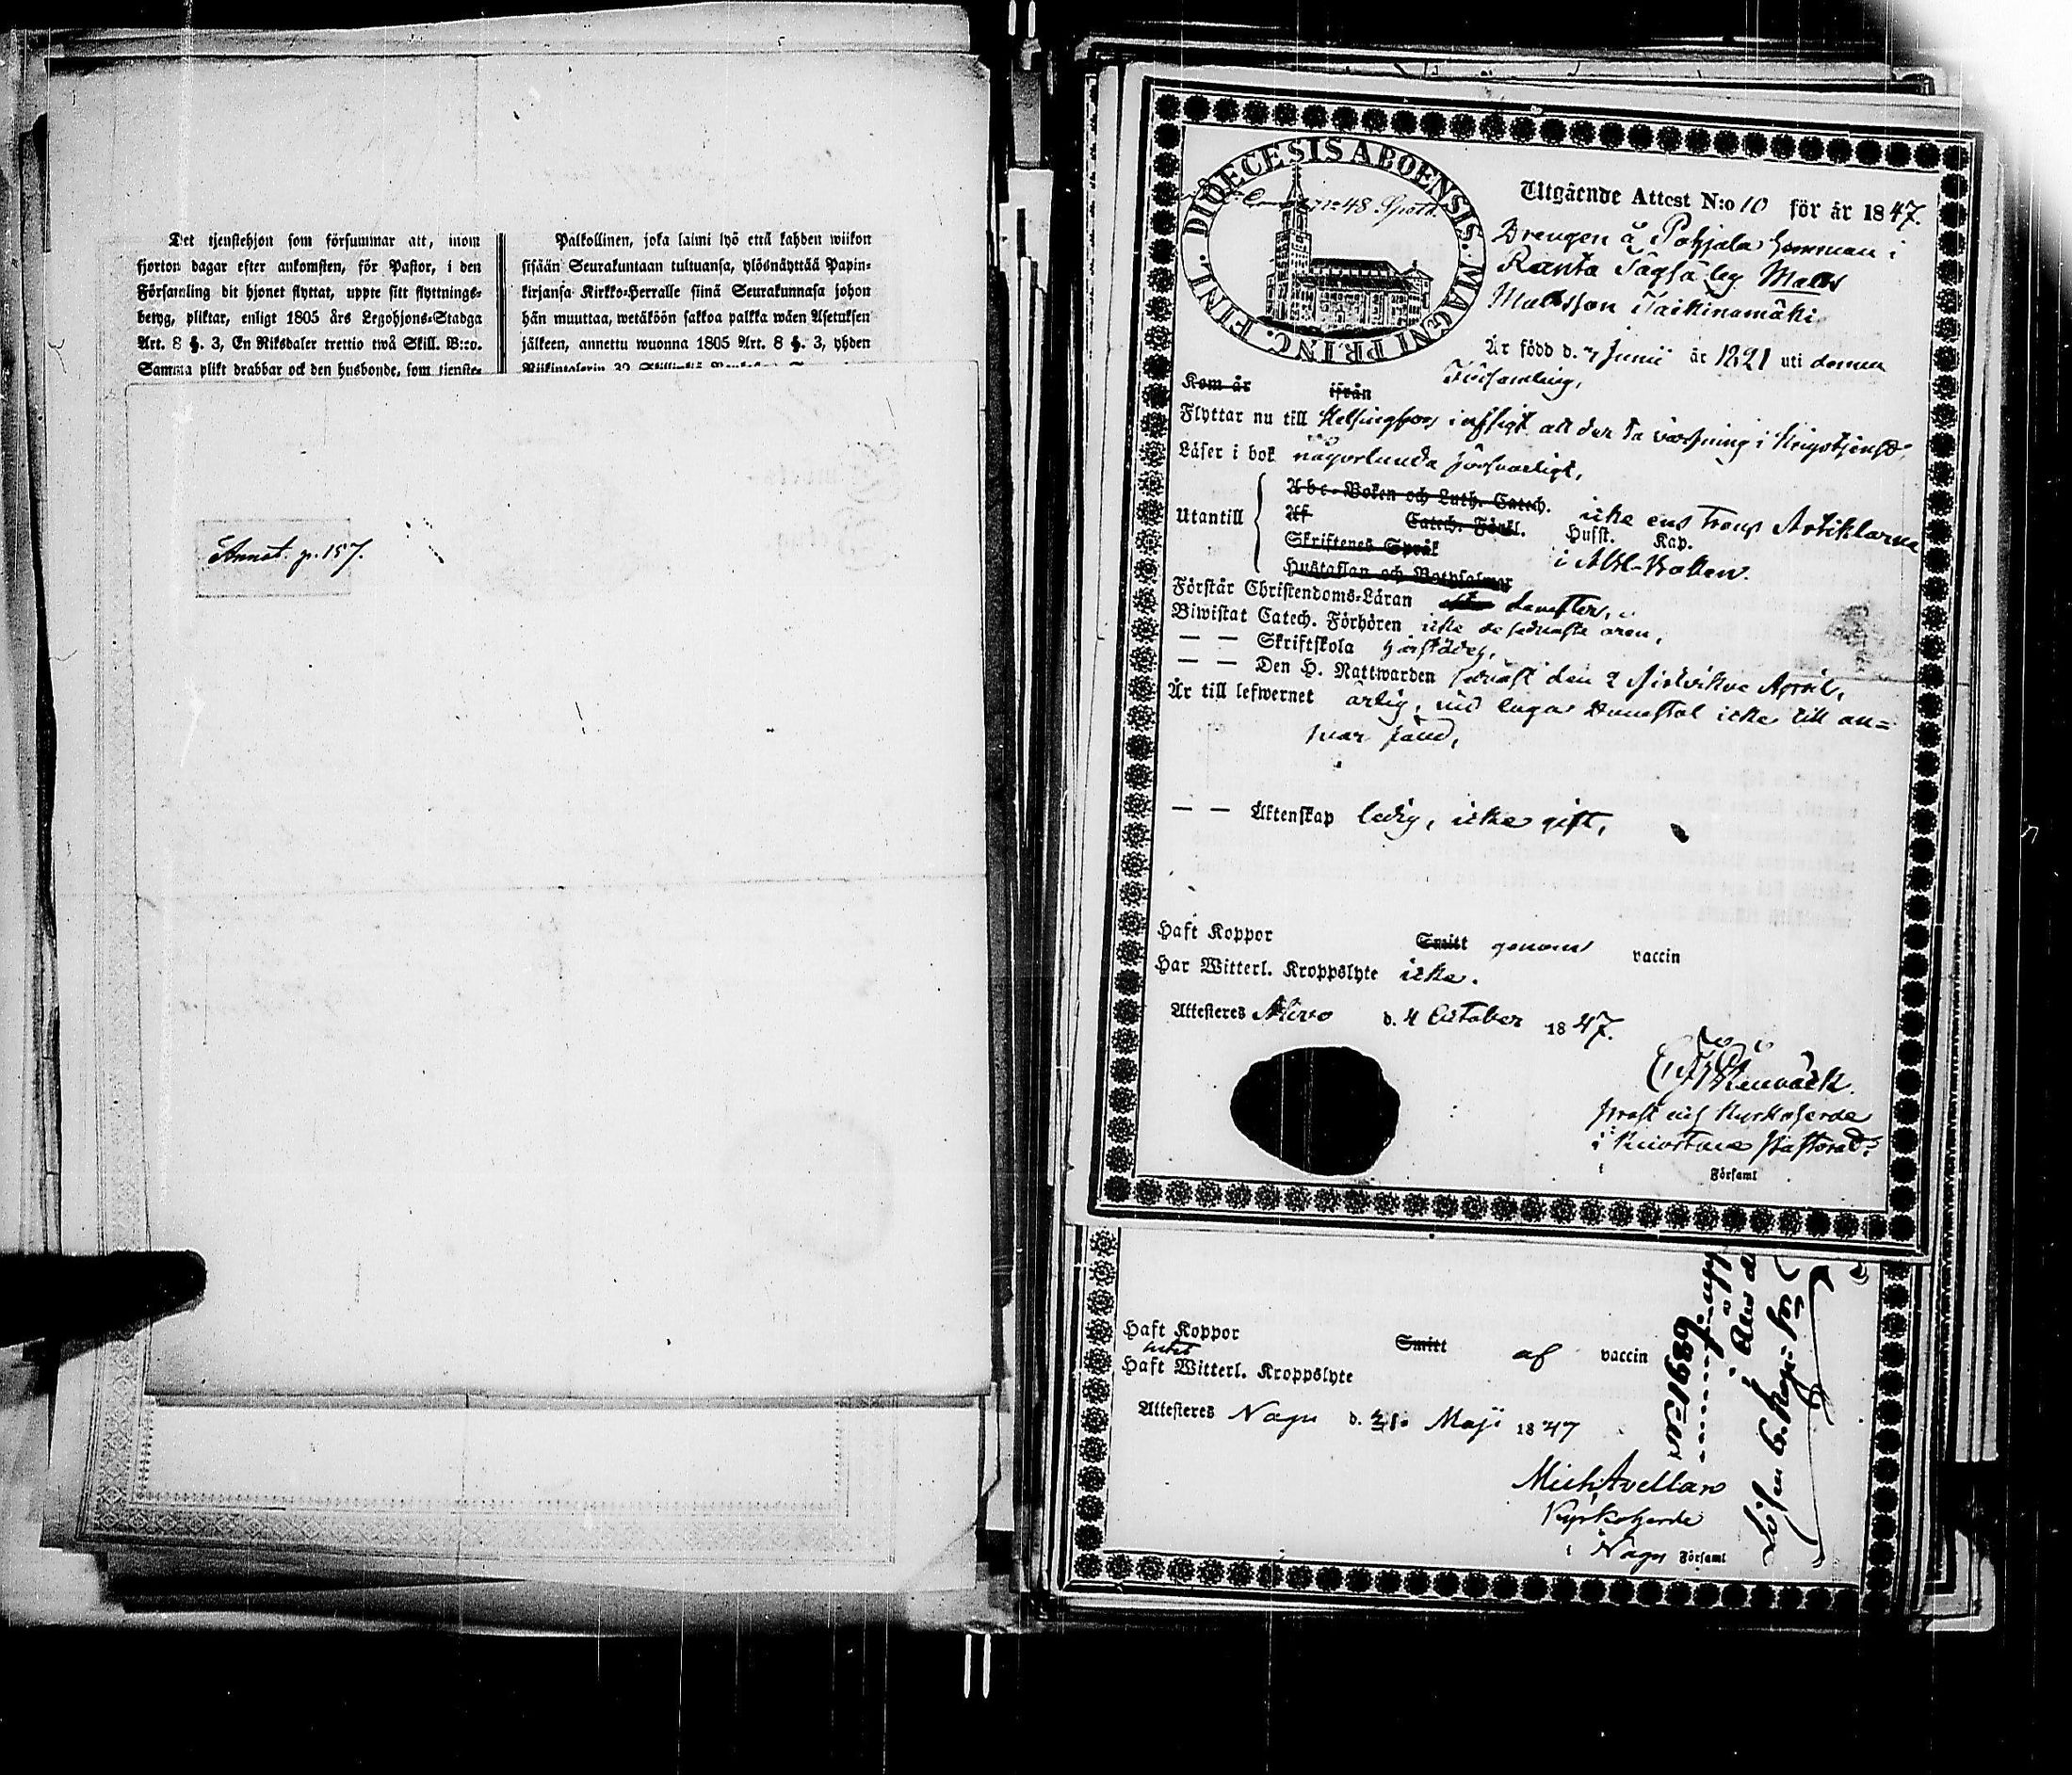 Det tjenstehjon som försummar att, inom
fjorton dagar efter ankomsten, för Pastor, i den
Församling dit hjonet flyttat, uppte sitt flyttnings-
betyg, pliktar, enligt 1805 års Legohjons-Stadga
Art. 8 §. 3, En Riksdaler trettio twå Skill. B:co.
Samma plikt drabbar ock den husbonde, som tjenste-
Palkollinen, joka laimi lyö että kahden wiikon
sisään Seurakuntaan tultuansa, ylösnäyttää Papin-
kirjansa Kirkko-Herralle siinä Seurakunnasa johon
hän muuttaa, wetäköön sakkoa palkka wäen Asetuksen
jälkeen, annettu wuonna 1805 Art. 8 §. 3, yhden
Riikintalerin 32 Skillinkiä
Annot. p. 157.
DIOECESIS ABOENSIS. MAGNI PRINC. FINL.
Utgående Attest N:o 10 för år 1847.
Drengen å Pohjala hemman i
Ranta
Mattsson
Är född d. 7 Junii år 1821 uti denna
Församling,
Kom år ifrån
Flyttar nu till Helsingfors i afsigt att der ta värfning i Krigstjenst,
Läser i bok någorlunda försvarligt,
Utantill
Abc-Boken och Luth. Catech. icke ens Trons Artiklarna
Af Catech. Förkl. Hufst. Kap.
Skriftenes Språk i ABC-Boken.
Hustaflan och Botpsalmer
Förstår Christendoms-Läran
Biwistat Catech. Förhören icke de sednaste åren,
— — Skriftskola
— — Den H. Nattwarden sednast den April,
Är till lefwernet ärlig, vid laga Domstol icke till an-
svar
— — Äktenskap ledig, icke gift,
Haft Koppor Smitt genom vaccin
Har Witterl. Kroppslyte icke.
Attesteres d. 4 October 1847.
Prost och Kyrkoherde
i Pastorat.
i Församl
Haft Koppor Smitt af vaccin
Haft Witterl. Kroppslyte
Attesteres Nagu d. Maji 1847
Mich. Avellan
Kyrkoherde
i Nagu Församl